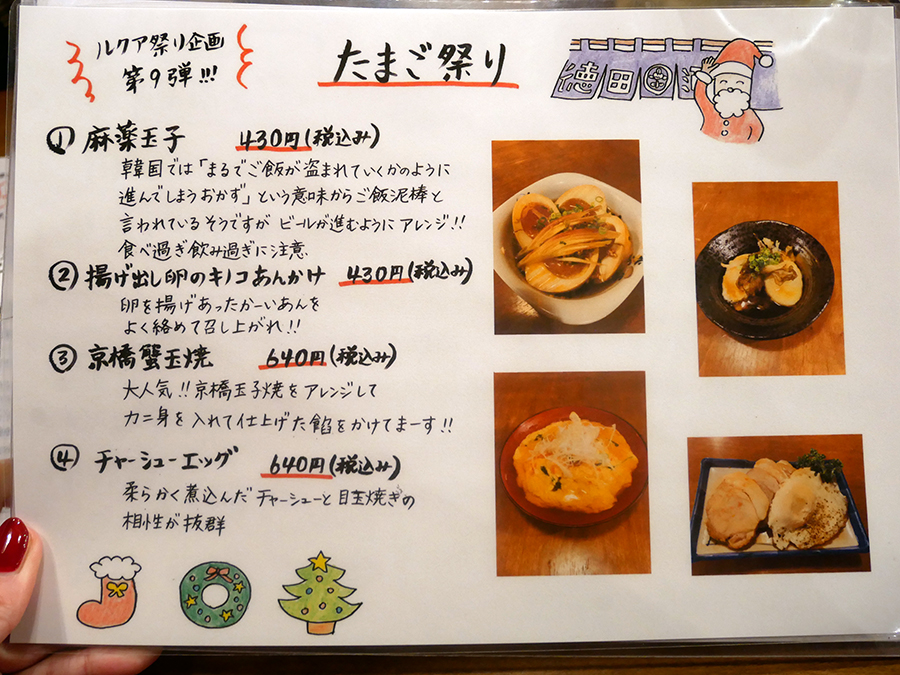 ルクア祭り企画
第9弾!!!
たまご祭り
徳田
① 麻薬玉子 430円(税込み)
韓国では「まるでご飯が盗まれていくかのように
進んでしまうおかず」という意味からご飯泥棒と
言われているそうですが ビールが進むようにアレンジ!!
食べ過ぎ飲み過ぎに注意
② 揚げ出し卵のキノコあんかけ 430円(税込み)
卵を揚げあったかーいあんを
よく絡めて召し上がれ!!
③ 京橋蟹玉焼 640円(税込み)
大人気!!京橋玉子焼をアレンジして
カニ身を入れて仕上げた餡をかけてまーす!!
④ チャーシューエッグ 640円(税込み)
柔らかく煮込んだチャーシューと目玉焼きの
相性が抜群